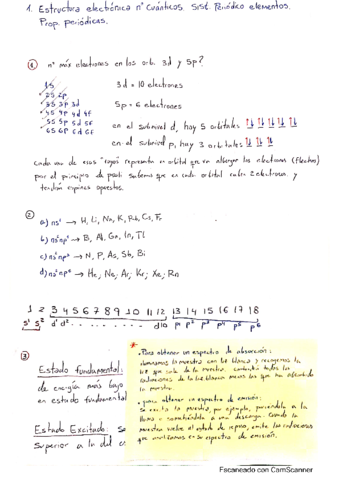 1. Estructura electrónica nº Cuánticos. Sist. Periódico elementos.
Prop. periódicas.
① nº máx electrones en los orb. 3d y 5p?
1s
2s 2p
3s 3p 3d
4s 4p 4d 4f
5s 5p 5d 5f
6s 6p 6d 6f
3d = 10 electrones
5p = 6 electrones
en el subnivel d, hay 5 orbitales ↑↓ ↑↓ ↑↓ ↑↓ ↑↓
en el subnivel p, hay 3 orbitales ↑↓ ↑↓ ↑↓
cada uno de esos "cajas" representa un orbital que va albergar los electrones (flechas)
por el principio de Pauli sabemos que en cada orbital caben 2 electrones y
tendrán espines opuestos.
②
a) ns¹ → H, Li, Na, K, Rb, Cs, Fr
b) ns²np¹ → B, Al, Ga, In, Tl
c) ns²np³ → N, P, As, Sb, Bi
d) ns²np⁶ → He, Ne, Ar, Kr, Xe, Rn
1 2 3 4 5 6 7 8 9 10 11 12 13 14 15 16 17 18
s¹ s² d¹ d² d10 p¹ p² p³ p⁴ p⁵ p⁶
③
Estado fundamental:
de energía más bajo
en estado fundamental
Estado Excitado: se
superior a la del
• Para obtener un espectro de absorción:
iluminamos la muestra con luz blanca y recogemos la
luz que sale de la muestra, contendrá todas las
radiaciones de la luz blanca menos las que ha absorbido
la muestra.
• para obtener un espectro de emisión:
Se excita la muestra, por ejemplo, poniéndola a la
llama o sometiéndola a una descarga. Cuando la
muestra vuelve al estado de reposo, emite las radiaciones
que analizamos en su espectro de emisión.
Escaneado con CamScanner